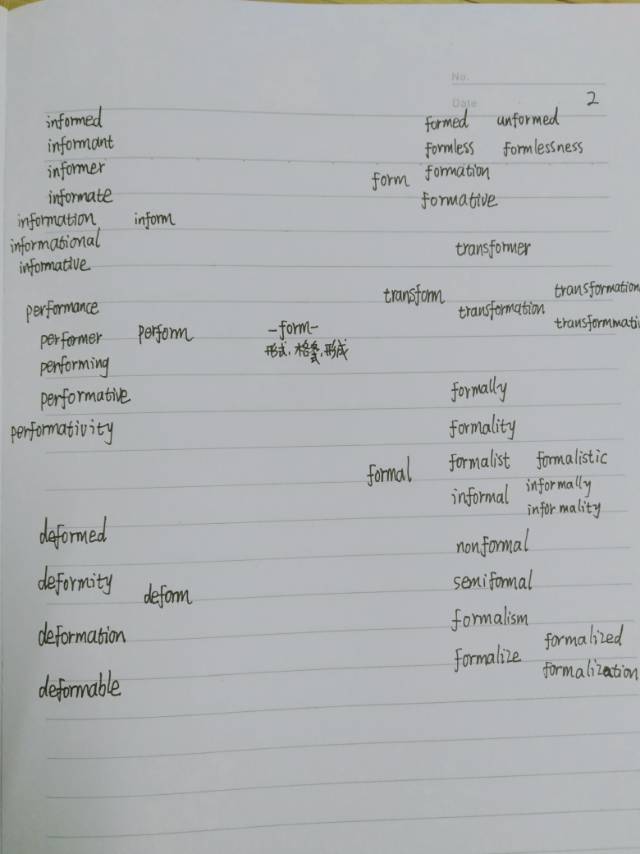 No.
Date
2
informed
informant
informer
informate
information inform
informational
informative
performance
performer perform
performing
performative
performativity
-form-
形式,格式,形成
deformed
deformity
deform
deformation
deformable
formed unformed
formless formlessness
form formation
formative
transformer
transform
transformation
transformation
transformmati
formally
formality
formal
formalist formalistic
informal informally
informality
nonformal
semiformal
formalism
formalize formalized
formalization